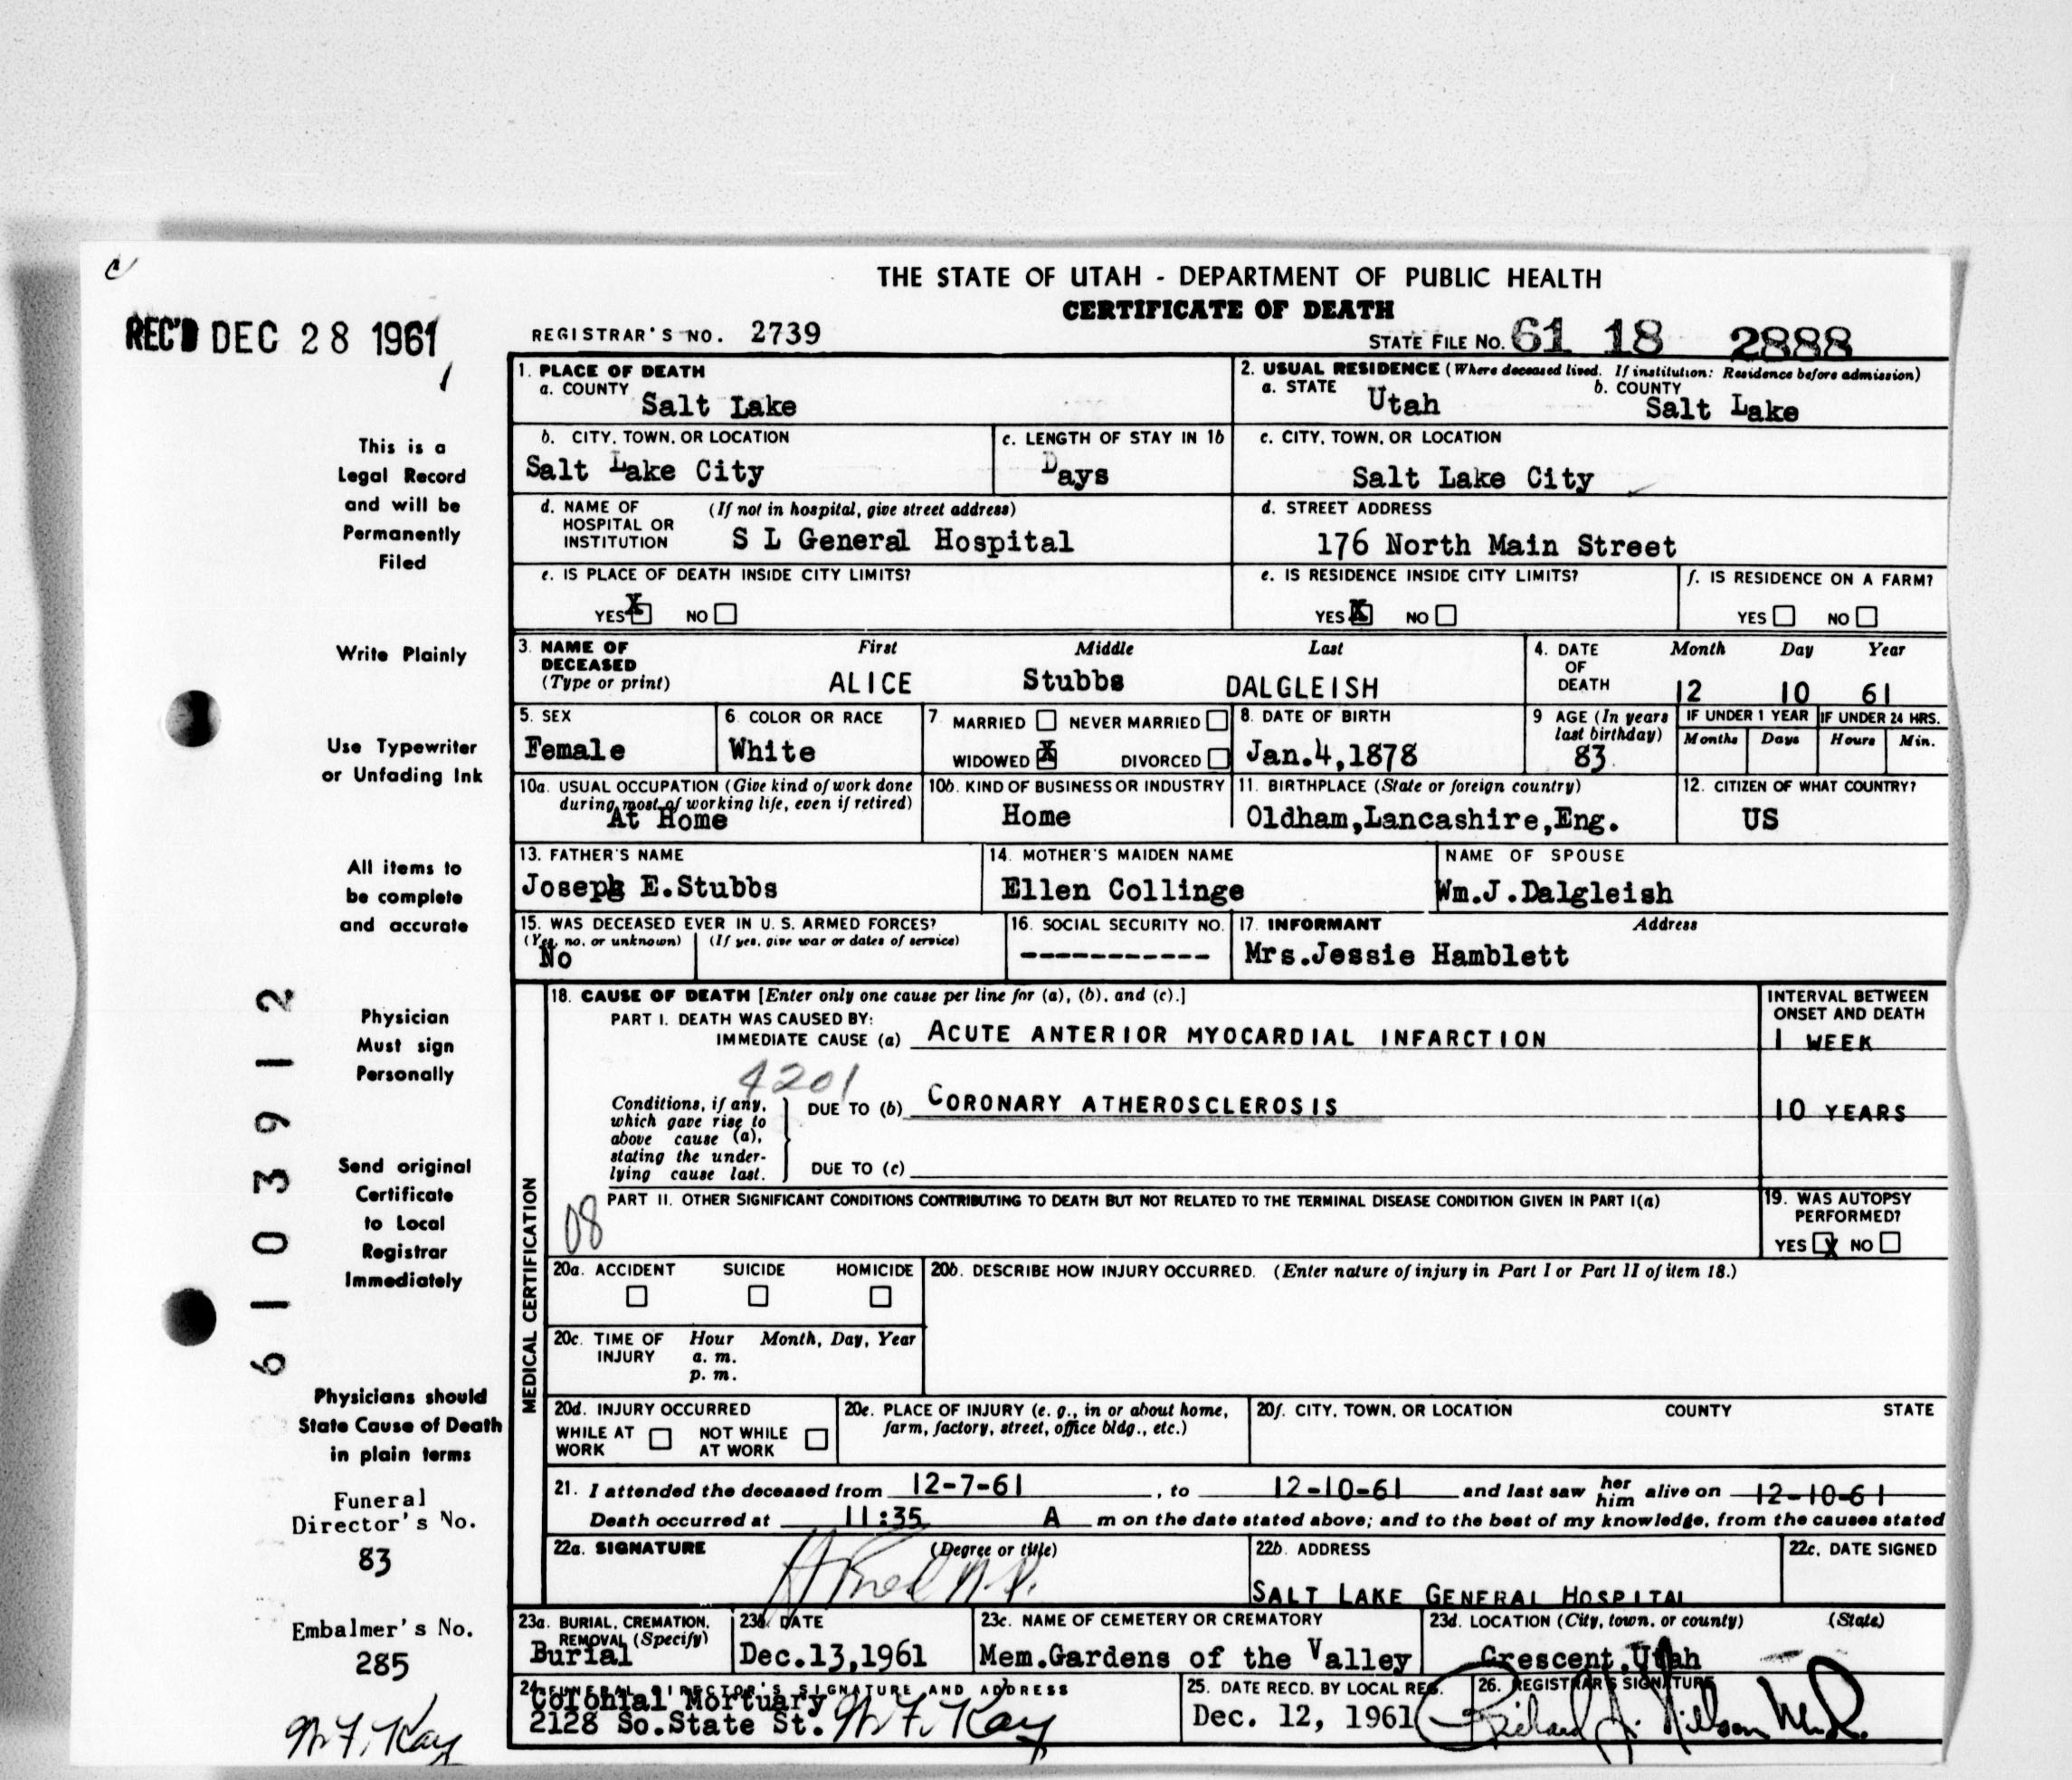 THE STATE OF UTAH - DEPARTMENT OF PUBLIC HEALTH
CERTIFICATE OF DEATH
REC'D DEC 28 1961
REGISTRAR'S NO. 2739
STATE FILE No. 61 18 2888
1. PLACE OF DEATH
a. COUNTY Salt Lake
2. USUAL RESIDENCE (Where deceased lived. If institution: Residence before admission)
a. STATE Utah b. COUNTY Salt Lake
b. CITY, TOWN, OR LOCATION
Salt Lake City
c. LENGTH OF STAY IN 1b
Days
c. CITY, TOWN, OR LOCATION
Salt Lake City
d. NAME OF HOSPITAL OR INSTITUTION (If not in hospital, give street address)
S L General Hospital
d. STREET ADDRESS
176 North Main Street
e. IS PLACE OF DEATH INSIDE CITY LIMITS?
YES X NO
e. IS RESIDENCE INSIDE CITY LIMITS?
YES X NO
f. IS RESIDENCE ON A FARM?
YES NO
3. NAME OF DECEASED (Type or print)
First Middle Last
ALICE Stubbs DALGLEISH
4. DATE OF DEATH
Month Day Year
12 10 61
5. SEX
Female
6. COLOR OR RACE
White
7 MARRIED NEVER MARRIED
WIDOWED X DIVORCED
8. DATE OF BIRTH
Jan.4,1878
9 AGE (In years last birthday)
83
IF UNDER 1 YEAR
Months Days
IF UNDER 24 HRS.
Hours Min.
10a. USUAL OCCUPATION (Give kind of work done during most of working life, even if retired)
At Home
10b. KIND OF BUSINESS OR INDUSTRY
Home
11. BIRTHPLACE (State or foreign country)
Oldham,Lancashire,Eng.
12. CITIZEN OF WHAT COUNTRY?
US
13. FATHER'S NAME
Joseph E.Stubbs
14. MOTHER'S MAIDEN NAME
Ellen Collinge
NAME OF SPOUSE
Wm.J.Dalgleish
15. WAS DECEASED EVER IN U. S. ARMED FORCES?
(Yes, no, or unknown) (If yes, give war or dates of service)
No
16. SOCIAL SECURITY NO.
------------
17. INFORMANT Address
Mrs.Jessie Hamblett
MEDICAL CERTIFICATION
18. CAUSE OF DEATH [Enter only one cause per line for (a), (b), and (c).]
PART I. DEATH WAS CAUSED BY:
IMMEDIATE CAUSE (a) ACUTE ANTERIOR MYOCARDIAL INFARCTION
INTERVAL BETWEEN ONSET AND DEATH
1 WEEK
4201
Conditions, if any, which gave rise to above cause (a), stating the underlying cause last.
DUE TO (b) CORONARY ATHEROSCLEROSIS
10 YEARS
DUE TO (c)
PART II. OTHER SIGNIFICANT CONDITIONS CONTRIBUTING TO DEATH BUT NOT RELATED TO THE TERMINAL DISEASE CONDITION GIVEN IN PART I(a)
08
19. WAS AUTOPSY PERFORMED?
YES X NO
20a. ACCIDENT SUICIDE HOMICIDE
20b. DESCRIBE HOW INJURY OCCURRED. (Enter nature of injury in Part I or Part II of item 18.)
20c. TIME OF INJURY
Hour Month, Day, Year
a. m.
p. m.
20d. INJURY OCCURRED
WHILE AT WORK NOT WHILE AT WORK
20e. PLACE OF INJURY (e. g., in or about home, farm, factory, street, office bldg., etc.)
20f. CITY, TOWN, OR LOCATION COUNTY STATE
21. I attended the deceased from 12-7-61, to 12-10-61 and last saw her him alive on 12-10-61
Death occurred at 11:35 A m on the date stated above; and to the best of my knowledge, from the causes stated
22a. SIGNATURE (Degree or title)
22b. ADDRESS
SALT LAKE GENERAL HOSPITAL
22c. DATE SIGNED
23a. BURIAL, CREMATION, REMOVAL (Specify)
Burial
23b. DATE
Dec.13,1961
23c. NAME OF CEMETERY OR CREMATORY
Mem.Gardens of the Valley
23d. LOCATION (City, town, or county) (State)
Crescent,Utah
24. FUNERAL DIRECTOR'S SIGNATURE AND ADDRESS
Colonial Mortuary
2128 So.State St. W. F. Kay
25. DATE RECD. BY LOCAL REG.
Dec. 12, 1961
26. REGISTRAR'S SIGNATURE
Richard J. Nilson M.D.
This is a
Legal Record
and will be
Permanently
Filed
Write Plainly
Use Typewriter
or Unfading Ink
All items to
be complete
and accurate
Physician
Must sign
Personally
Send original
Certificate
to Local
Registrar
Immediately
6103912
Physicians should
State Cause of Death
in plain terms
Funeral
Director's No.
83
Embalmer's No.
285
W. F. Kay